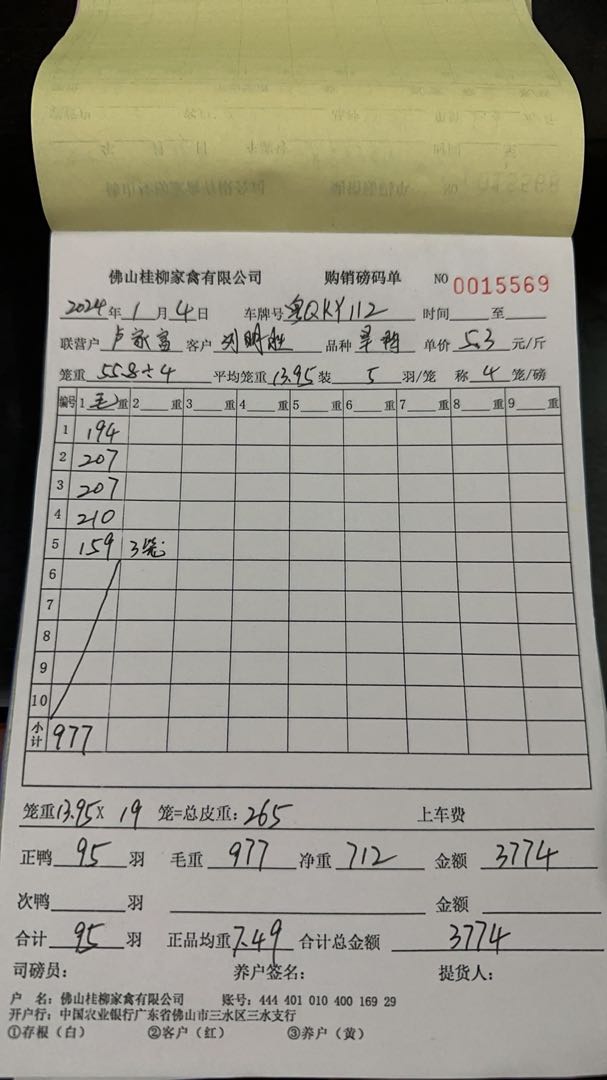 佛山桂柳家禽有限公司 购销磅码单 NO 0015569
2024年1月4日 车牌号 粤QKY112 时间 至
联营户 卢家富 客户 刘明胜 品种 旱鸭 单价 5.3 元/斤
笼重 55.8÷4 平均笼重 13.95 装 5 羽/笼 称 4 笼/磅
编号 1 毛 重 2 重 3 重 4 重 5 重 6 重 7 重 8 重 9 重
1 194
2 207
3 207
4 210
5 159 3笼
6
7
8
9
10
小计 977
笼重13.95X 19 笼=总皮重:265 上车费
正鸭 95 羽 毛重 977 净重 712 金额 3774
次鸭 羽 金额
合计 95 羽 正品均重 7.49 合计总金额 3774
司磅员: 养户签名: 提货人:
户 名:佛山桂柳家禽有限公司 账号:444 401 010 400 169 29
开户行:中国农业银行广东省佛山市三水区三水支行
①存根(白) ②客户(红) ③养户(黄)